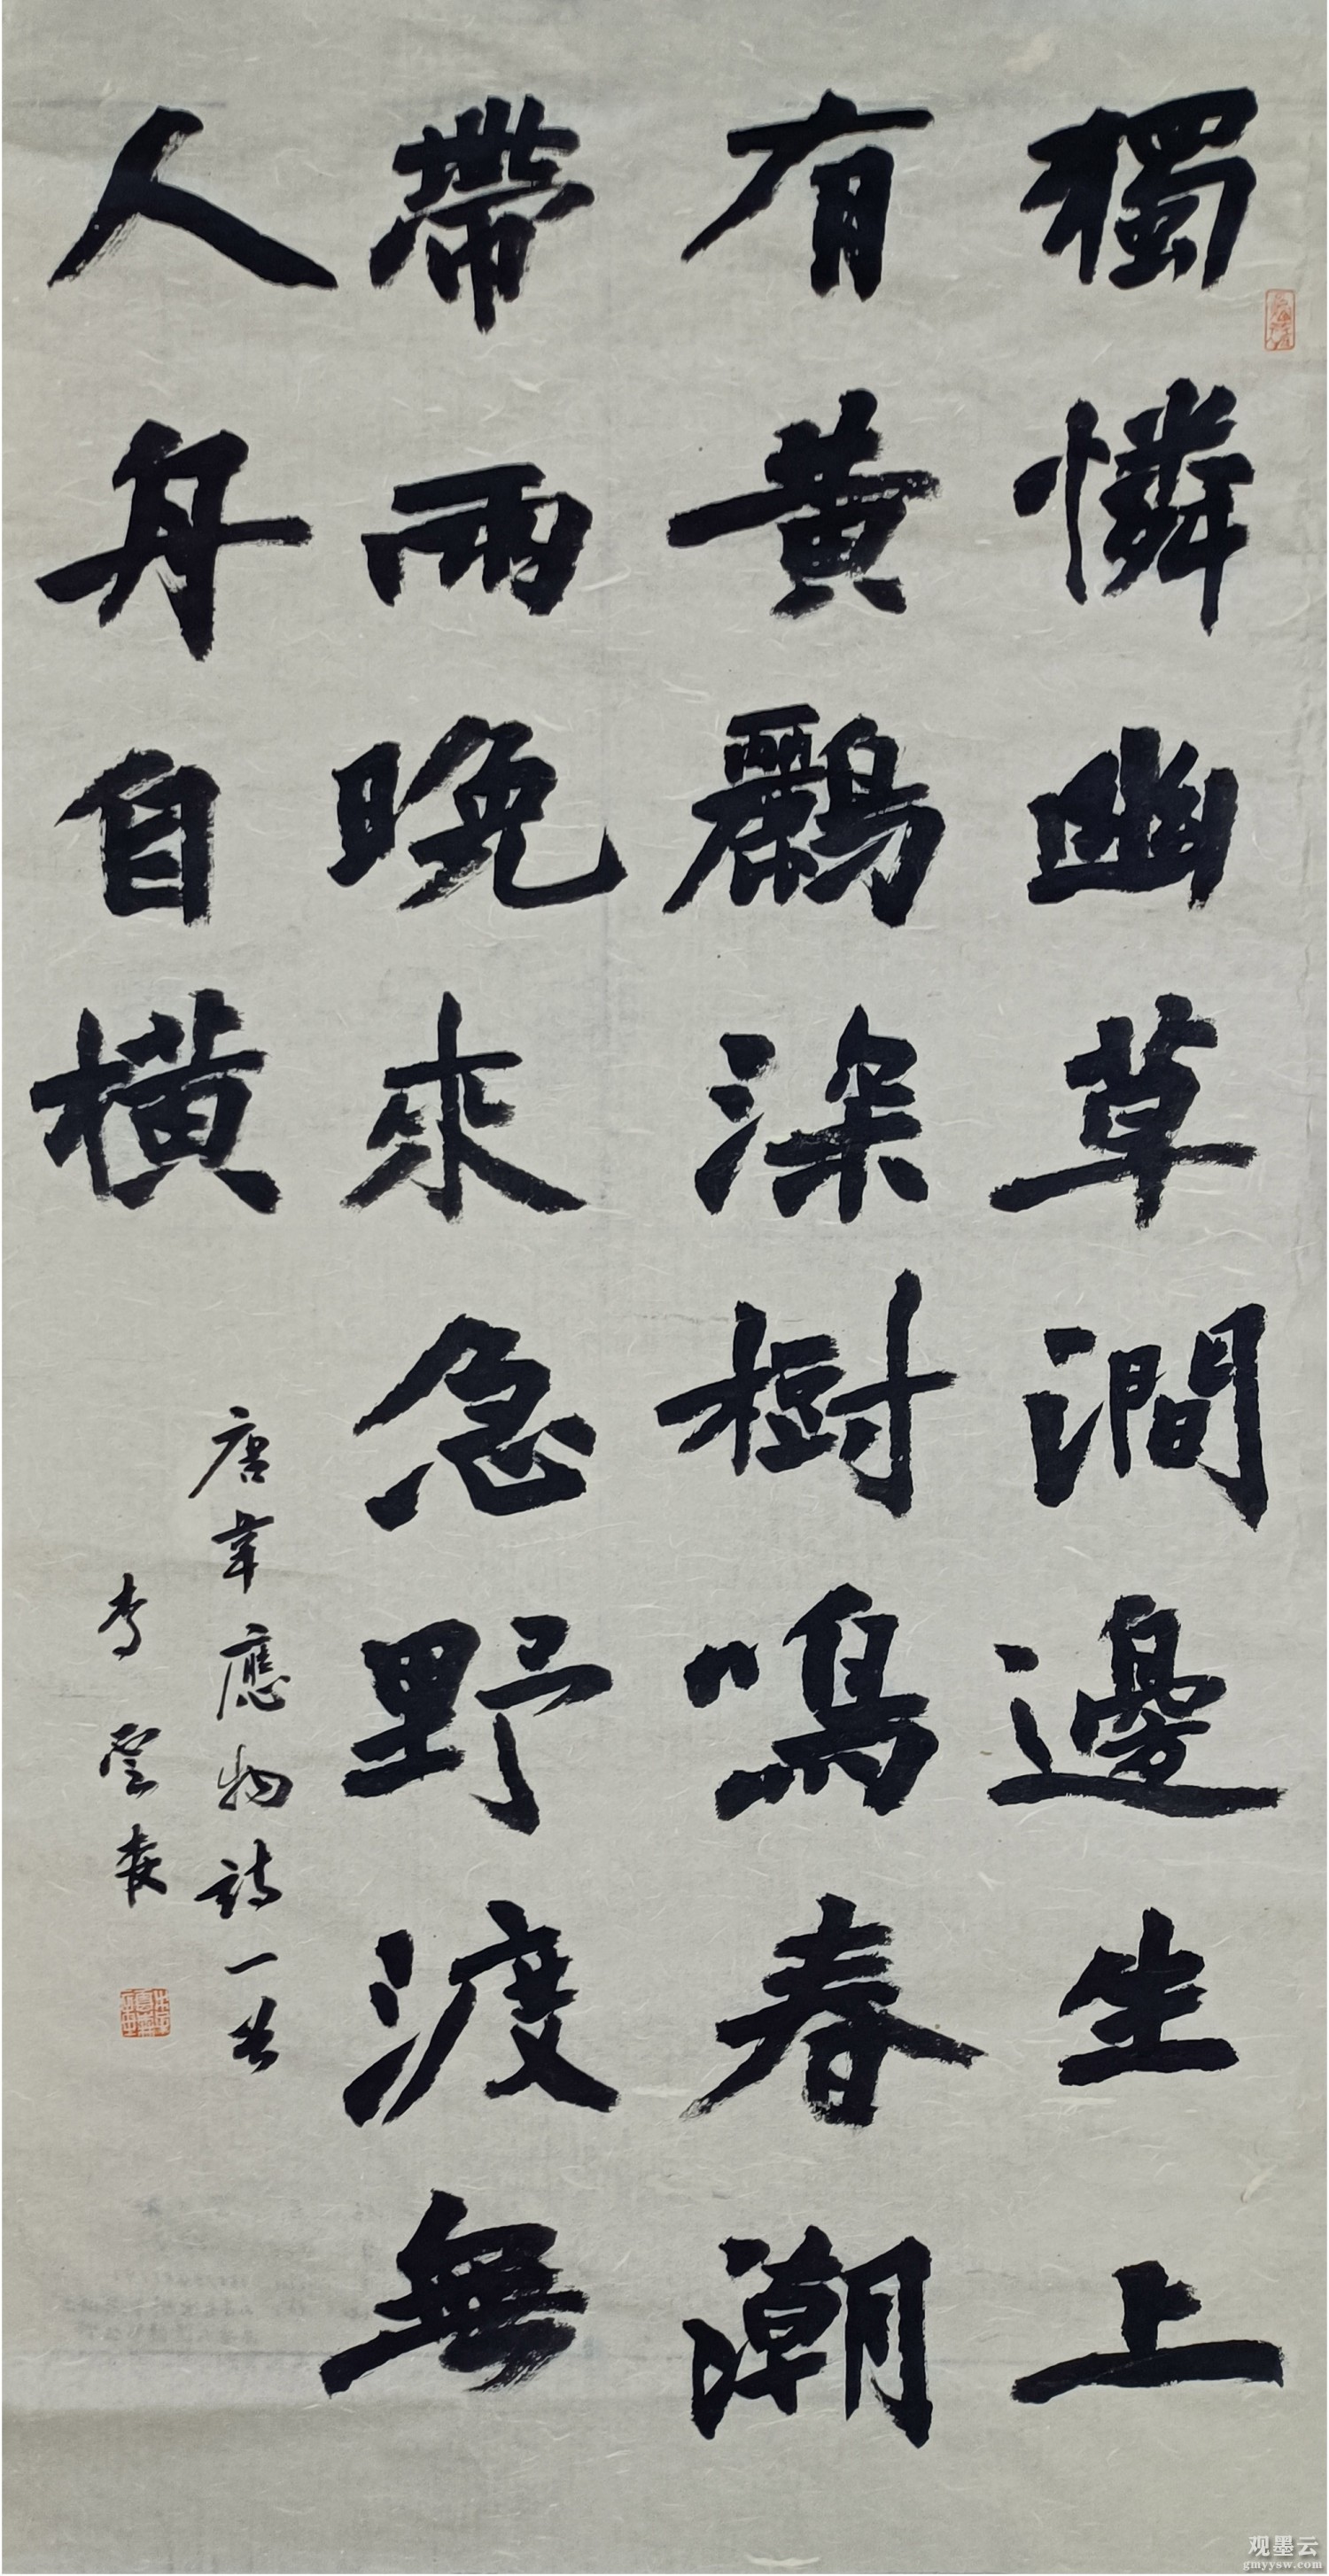 獨憐幽草澗邊生上
有黃鸝深樹鳴春潮
帶雨晚來急野渡無
人舟自橫
唐韋應物詩一首
李雲
观墨云
gmyysw.com